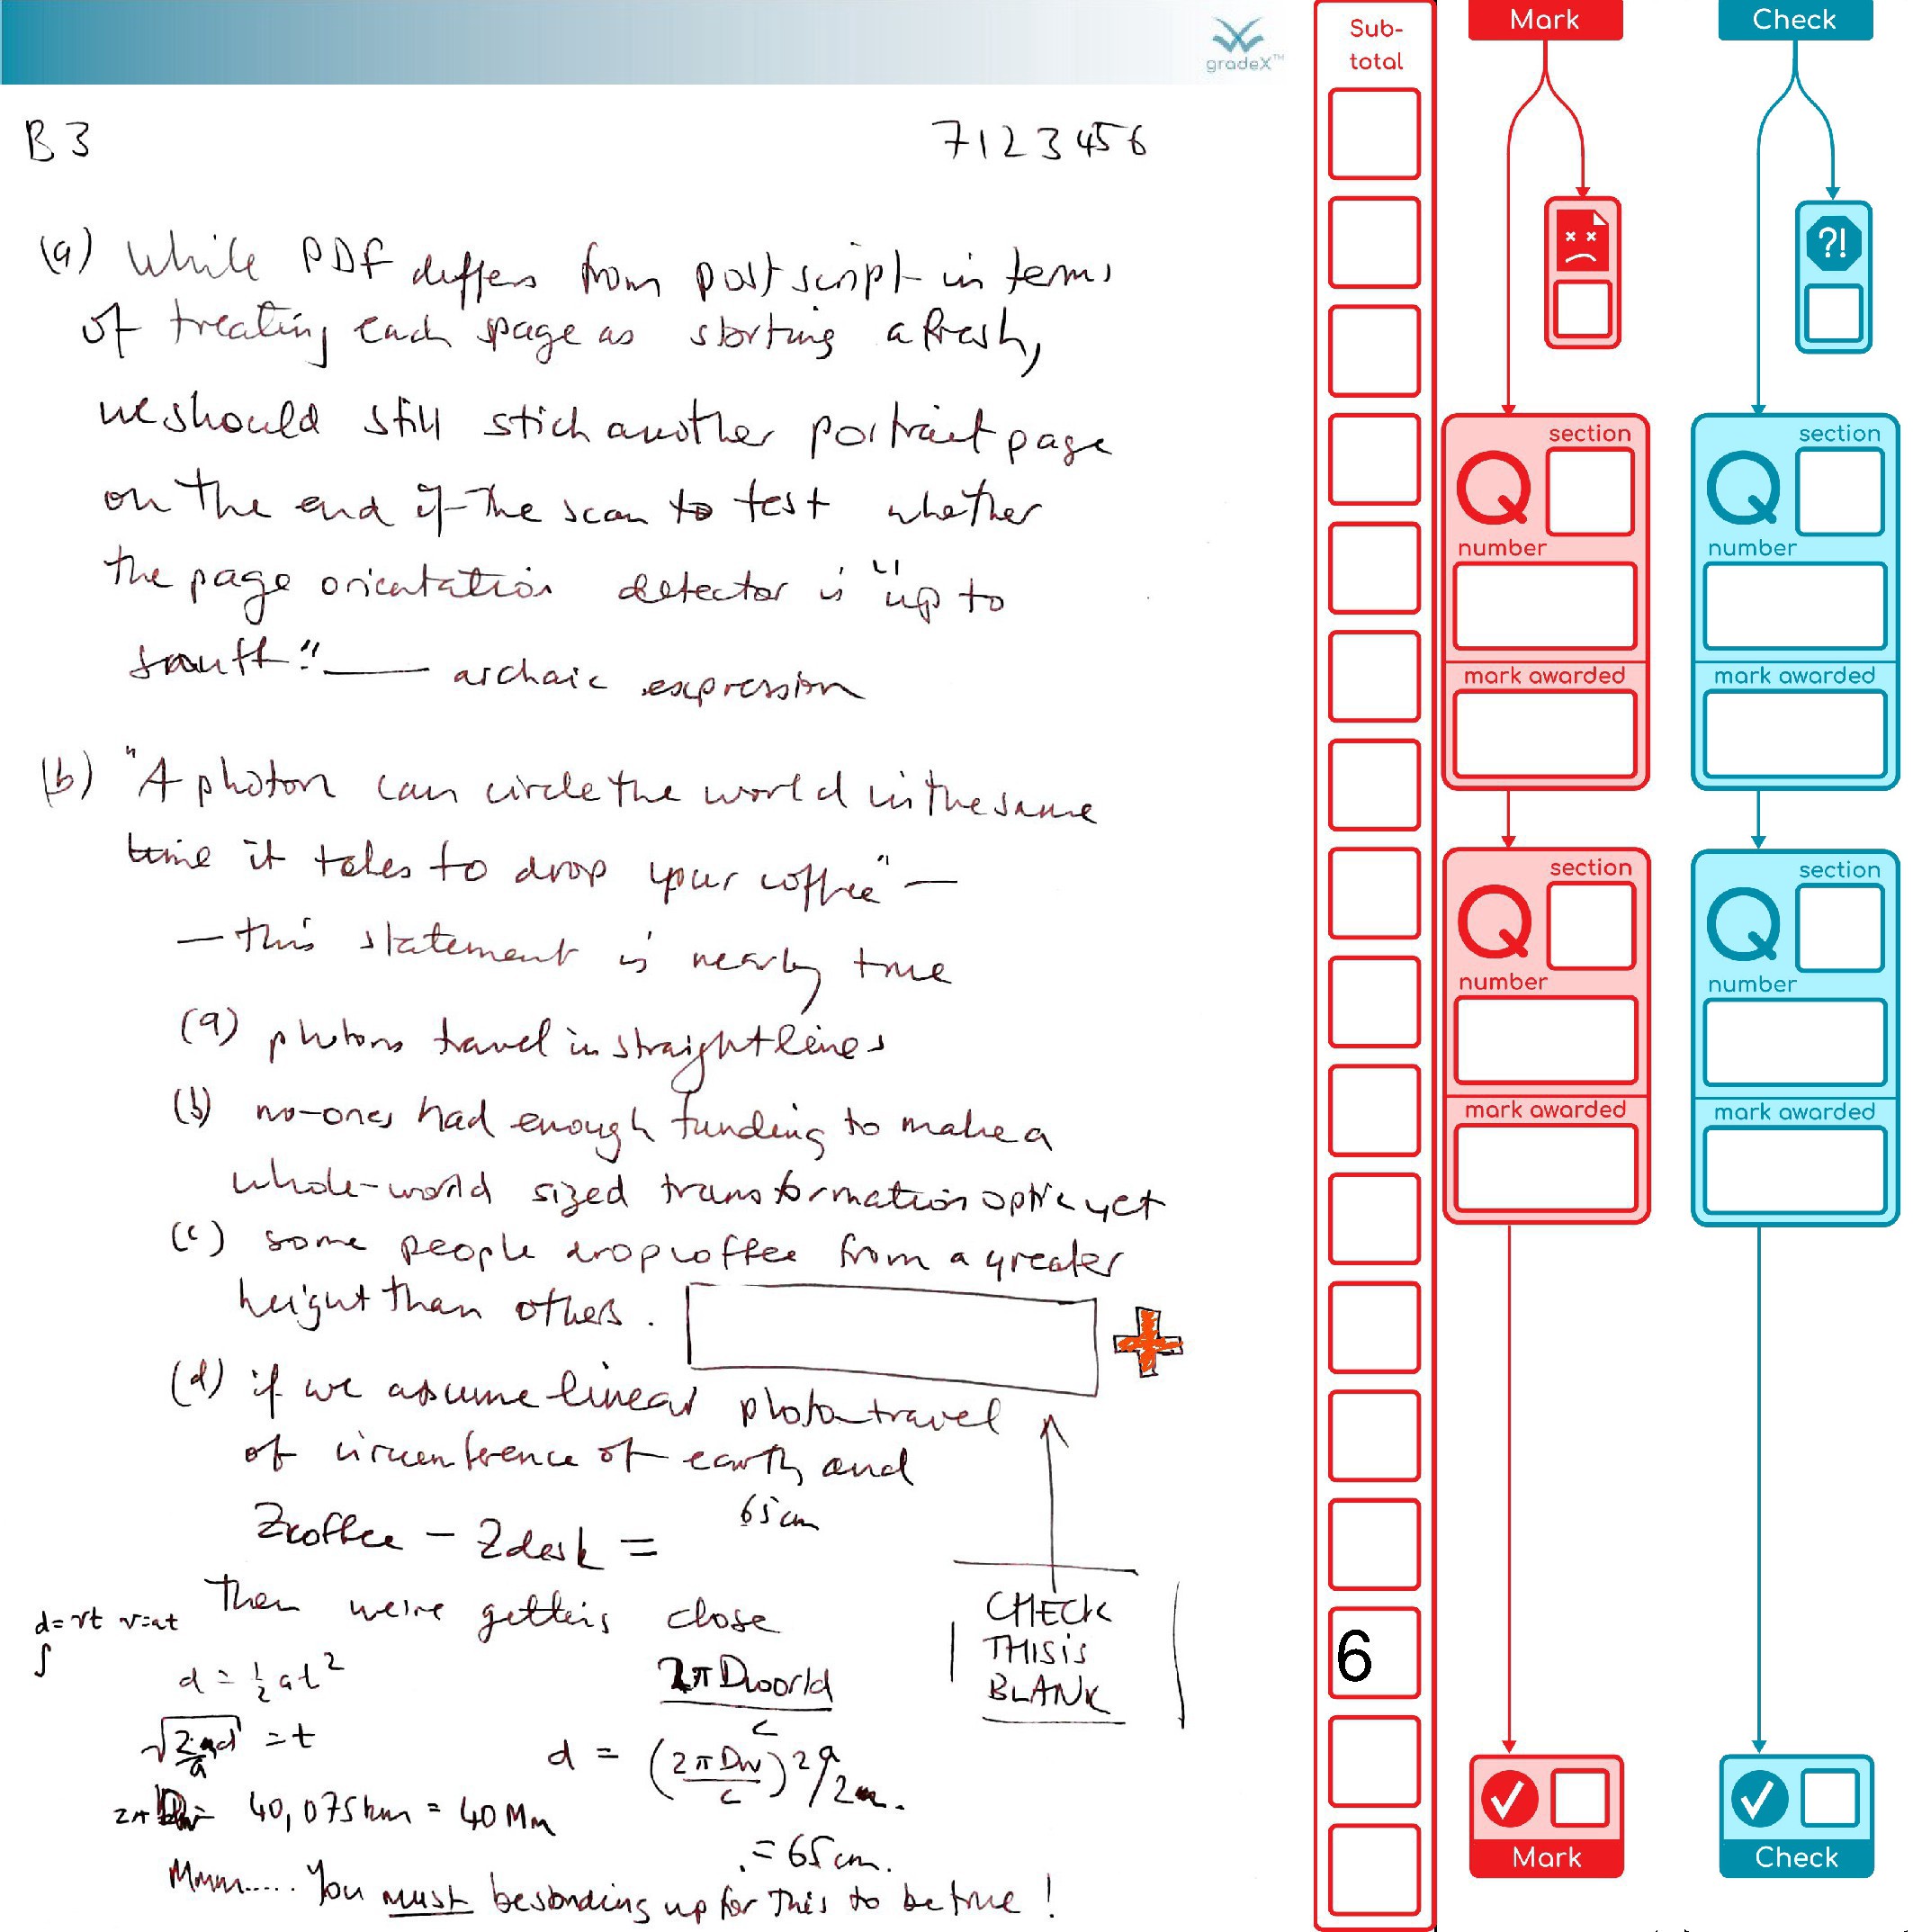 gradeX™
B3 7123456
(a) While PDF differs from postscript in terms
of treating each page as starting afresh,
we should still stich another portrait page
on the end of the scan to test whether
the page orientation detector is "up to
— archaic expression
(b) "A photon can circle the world in the same
time it takes to drop your coffee" —
— this statement is nearly true
(a) photons travel in straight lines
(b) no-ones had enough funding to make a
whole-world sized transformation optic yet
(c) some people drop coffee from a greater
height than others.
(d) if we assume linear photon travel
of circumference of earth and
Zcoffee - Zdesk = 65cm
Then we're getting close
d=vt v=at
∫
d = ½at²
2πDworld
c
= t
d = (2πDw/c)² a/2
40,075km = 40Mm
= 65cm.
Mmm..... You must be standing up for this to be true!
CHECK
THIS is
BLANK
Sub-
total
6
Mark
section
Q
number
mark awarded
section
Q
number
mark awarded
Mark
Check
?!
section
Q
number
mark awarded
section
Q
number
mark awarded
Check